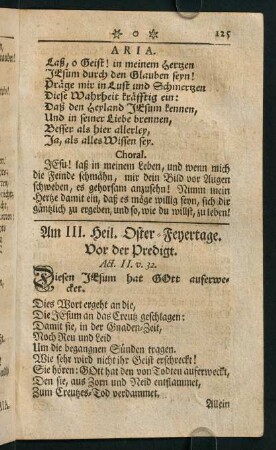 ☸ o ☸ 125
ARIA.
Laß, o Geist! in meinem Hertzen
JEsum durch den Glauben seyn!
Präge mir in Lust und Schmertzen
Diese Wahrheit kräfftig ein:
Daß den Heyland JEsum kennen,
Und in seiner Liebe brennen,
Besser als hier allerley,
Ja, als alles Wissen sey.
Choral.
JEsu! laß in meinem Leben, und wenn mich
die Feinde schmähn, mir dein Bild vor Augen
schweben, es gehorsam anzusehn! Nimm mein
Hertze damit ein, daß es möge willig seyn, sich dir
gäntzlich zu ergeben, und so, wie du willst, zu leben!
Am III. Heil. Oster-Feyertage.
Vor der Predigt.
Act. II. v. 32.
Diesen JEsum hat GOtt auferwe-
cket.
Dies Wort ergeht an die,
Die JEsum an das Creutz geschlagen:
Damit sie, in der Gnaden-Zeit,
Noch Reu und Leid
Um die begangnen Sünden tragen.
Wie sehr wird nicht ihr Geist erschreckt!
Sie hören: GOtt hat den von Todten auferweckt,
Den sie, aus Zorn und Neid entflammet,
Zum Creutzes-Tod verdammet.
Allein